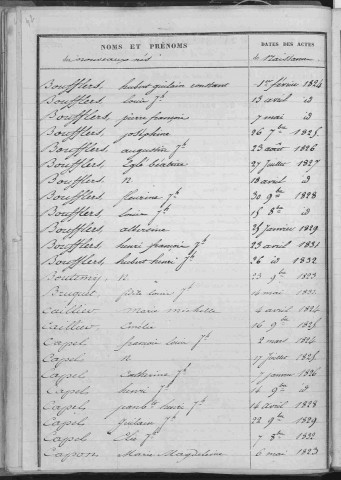 NOMS ET PRÉNOMS
DATES DES ACTES
des nouveaux nés
de Naissance
Boufflers, hubert guilain constant 1er février 1824
Boufflers, louis Jh 13 avril id
Boufflers, pierre françois 7 mai id
Boufflers, joséphine 26 7bre 1825
Boufflers, augustin Jh 23 août 1826
Boufflers, Eglé béatrice 27 Juillet 1827
Boufflers, N 18 avril id
Boufflers, fleurine Jh 30 9bre 1828
Boufflers, louis Jh 15 8bre id
Boufflers, 25 Janvier 1829
Boufflers, henri françois Jh 23 avril 1831
Boufflers, hubert henri Jh 26 id 1832
Boutemy, N 23 9bre 1823
Bruquet, louis Jh 14 mai 1832
Caillieu, marie michelle 4 avril 1824
Caillieu, 16 9bre 1825
Capel, françois louis Jh 2 mars 1824
Capel, N 17 Juillet 1825
Capel, Catherine Jh 7 janvier 1826
Capel, henri Jh 16 9bre id
Capel, henri Jh 14 avril 1828
Capel, guilain Jh 22 9bre 1829
Capel, Elie Jh 7 8bre 1832
Capron, Marie Magdeleine 6 mai 1823